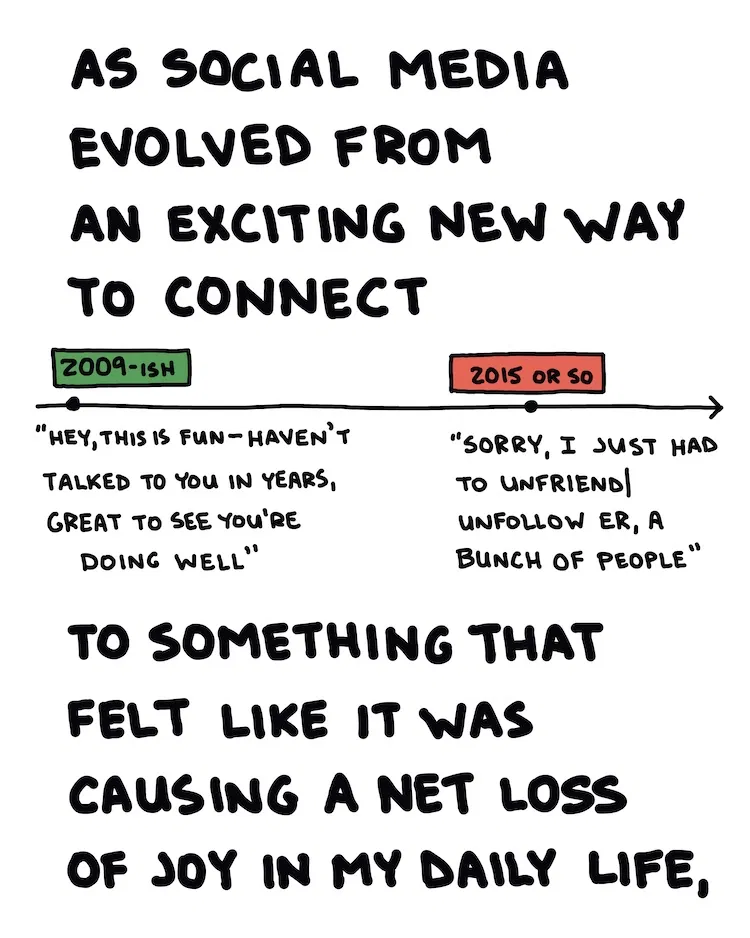 AS SOCIAL MEDIA
EVOLVED FROM
AN EXCITING NEW WAY
TO CONNECT
2009-ISH
"HEY, THIS IS FUN—HAVEN'T
TALKED TO YOU IN YEARS,
GREAT TO SEE YOU'RE
DOING WELL"
2015 OR SO
"SORRY, I JUST HAD
TO UNFRIEND|
UNFOLLOW ER, A
BUNCH OF PEOPLE"
TO SOMETHING THAT
FELT LIKE IT WAS
CAUSING A NET LOSS
OF JOY IN MY DAILY LIFE,